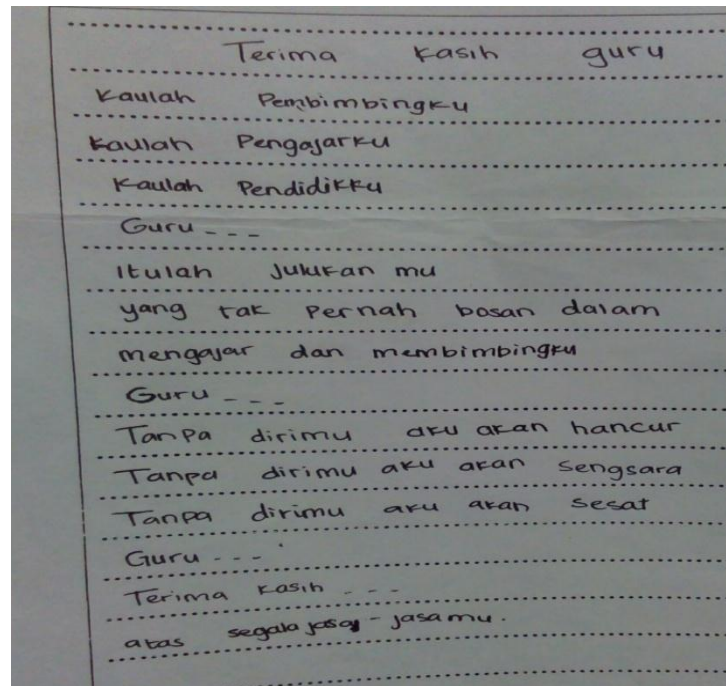 Terima kasih guru
Kaulah Pembimbingku
Kaulah Pengajarku
Kaulah Pendidikku
Guru - - -
Itulah Julukan mu
yang tak Pernah bosan dalam
mengajar dan membimbingku
Guru - - -
Tanpa dirimu aku akan hancur
Tanpa dirimu aku akan Sengsara
Tanpa dirimu aku akan Sesat
Guru - - -
Terima kasih - - -
atas segala jasa - jasamu.